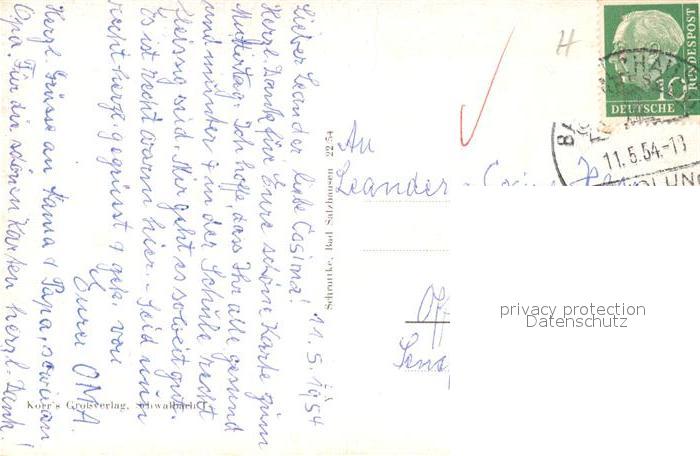 11.5.1954
Lieber Leander, liebe Cosima!
Herzl. Dank für Eure schöne Karte zum
Muttertag. Ich hoffe, dass Ihr alle gesund
und munter & in der Schule recht
fleissig seid. Mir geht es soweit gut.
Es ist recht warm hier. - Seid nun
recht herzl. gegrüsst & gek. von
Eurer OMA.
Herzl. Grüsse an Mama & Papa, sowie an
Opa. Für die schönen Karten herzl. Dank!
Korr's Großverlag, Schwalbach
Schroutke, Bad Salzhausen 22 54
An
Leander
H
10
DEUTSCHE
BUNDESPOST
11.5.54.-13
privacy protection
Datenschutz